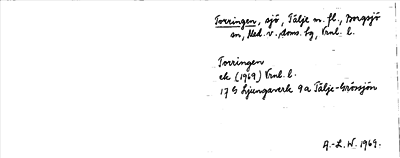 Torringen, sjö, Tälje m. fl., Borgsjö
sn, Med. v. doms. hg, Vrnl. l.
Torringen
ek (1969) Vrnl. l.
17 G Ljungaverk 9a Tälje-Grössjön
A.-L. W. 1969.